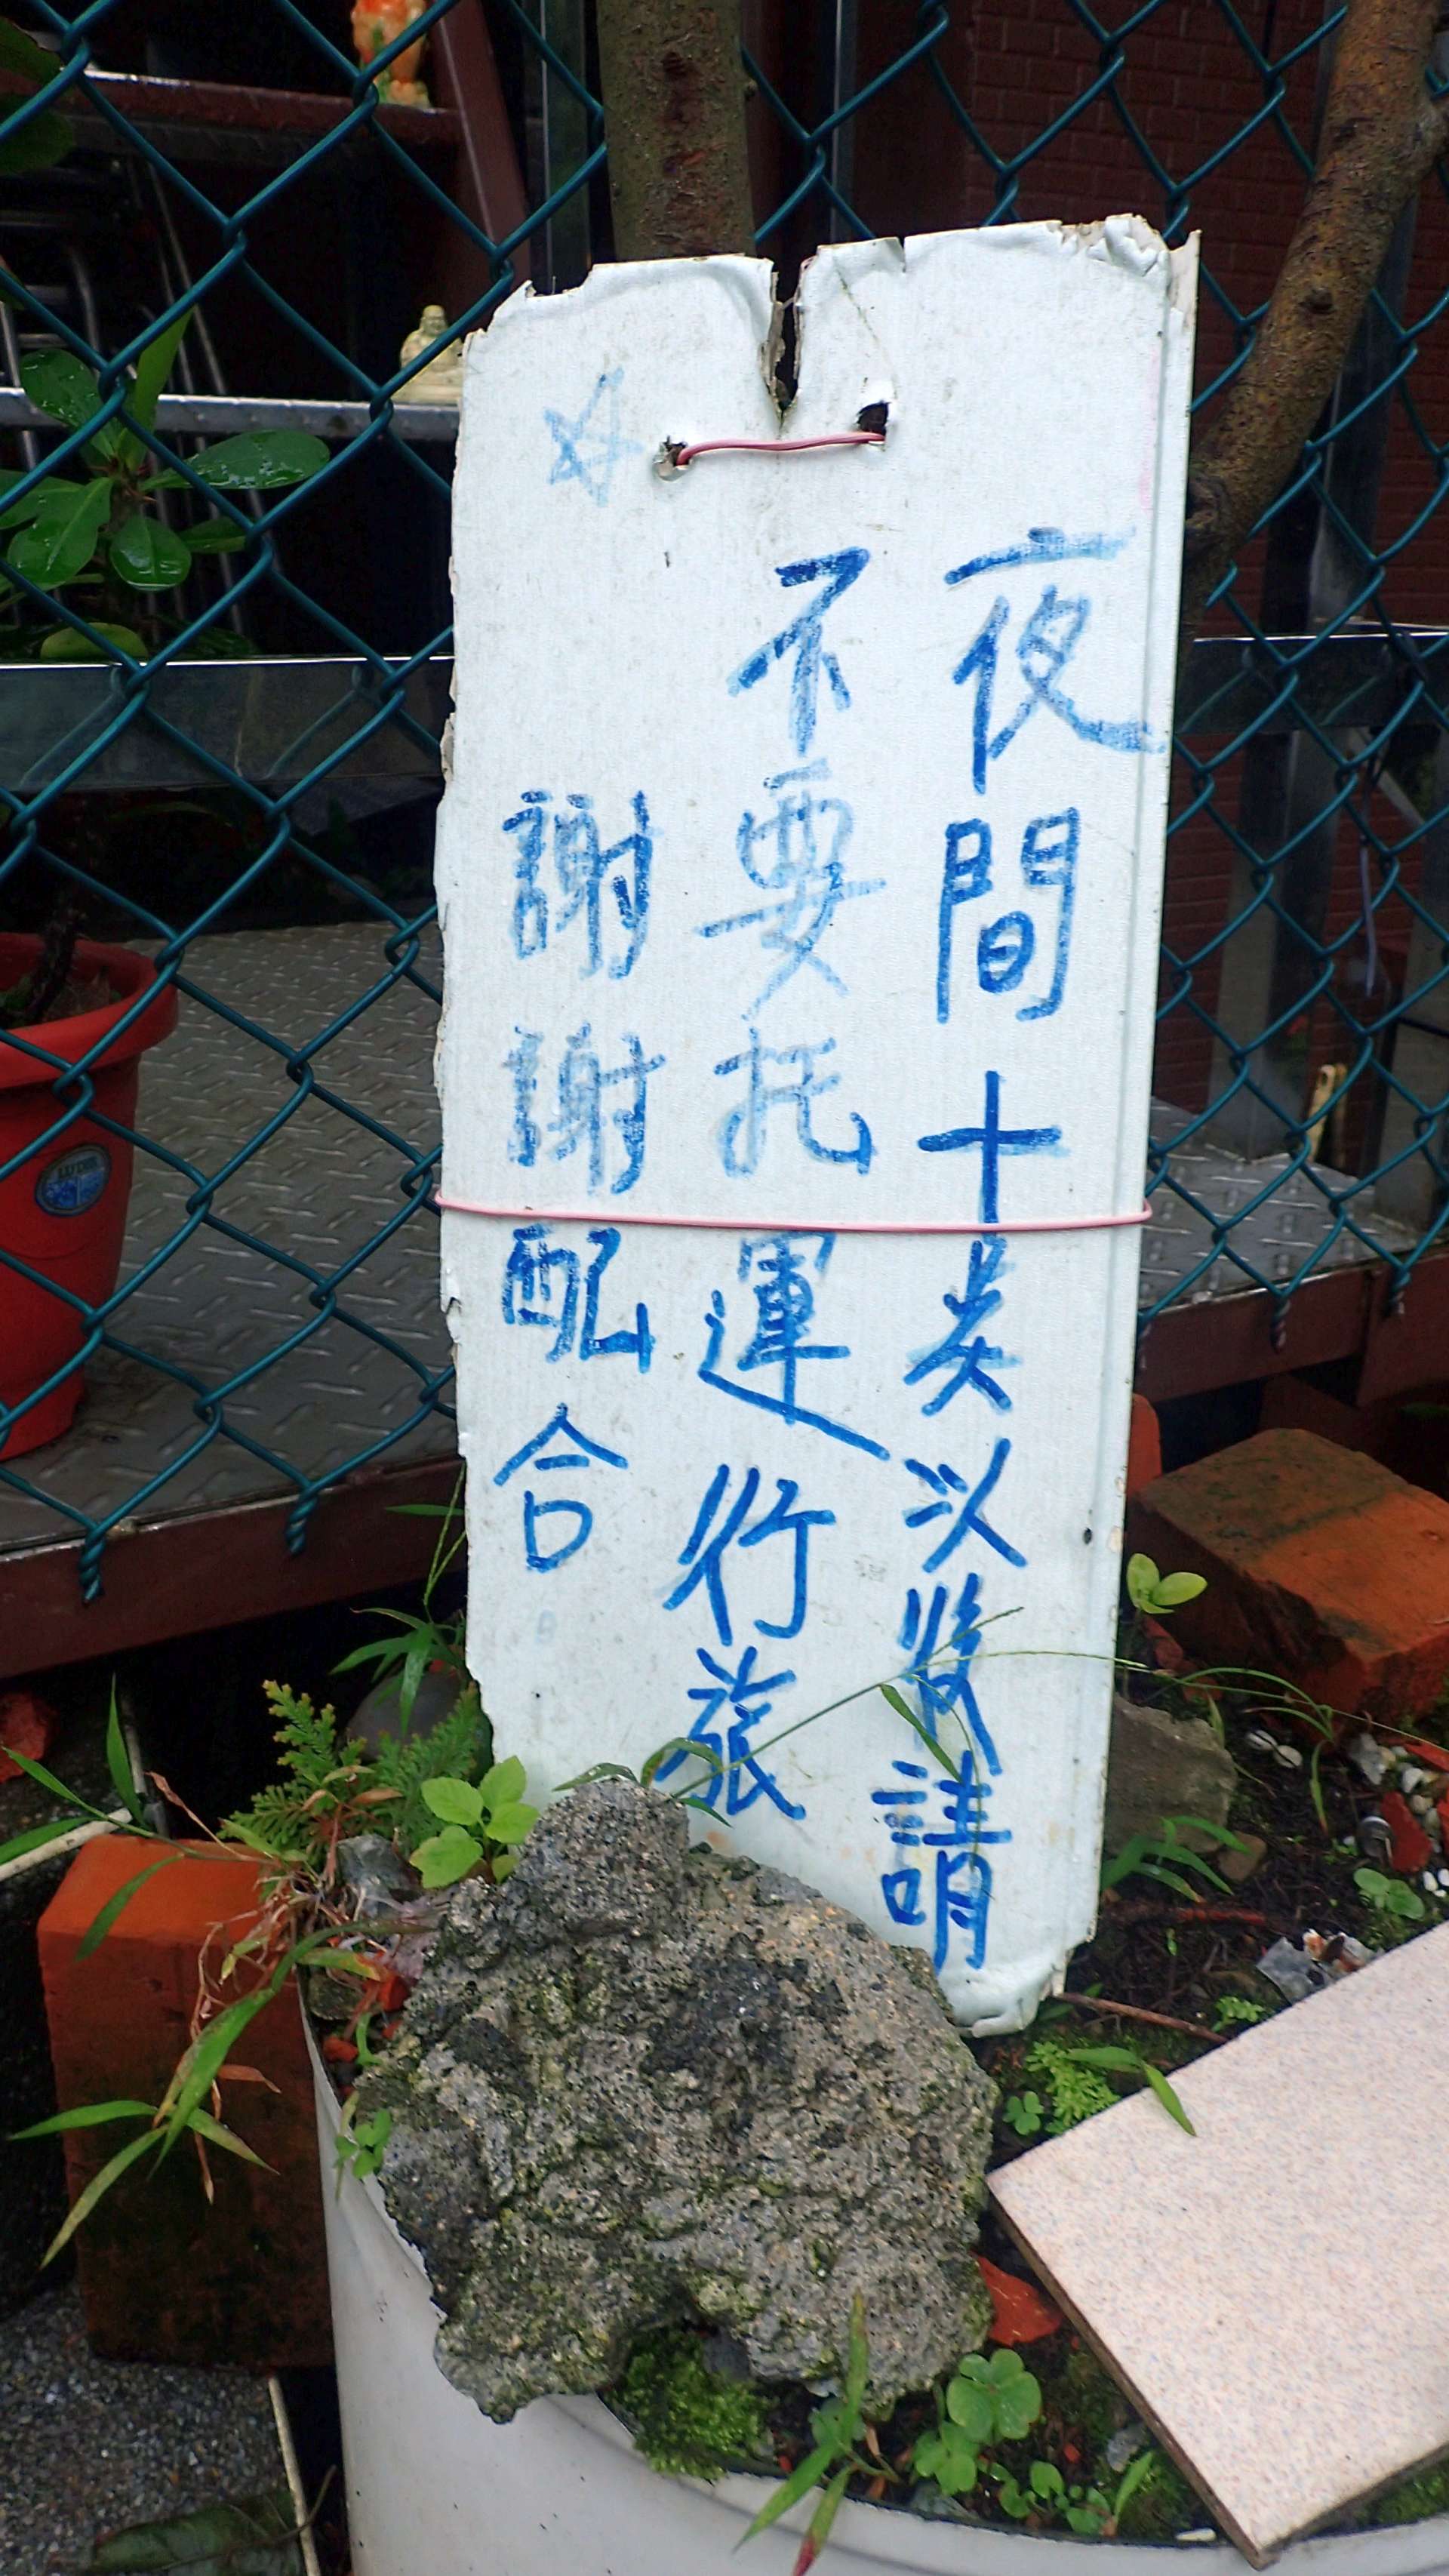 夜間十奌以後請
不要托運行旅
謝謝配合